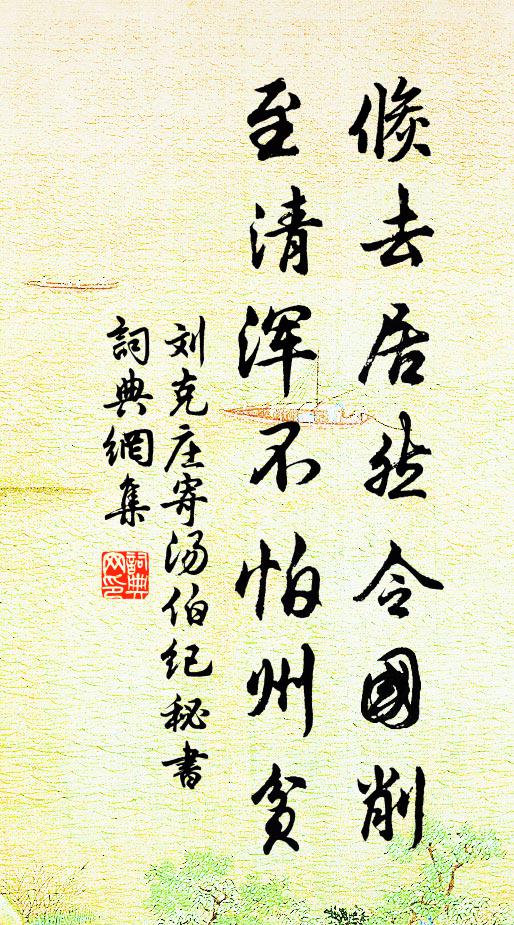 倏去居然令國削
至清浑不怕州貧
刘克庄寄汤伯纪秘書
詞典網集
詞典网印